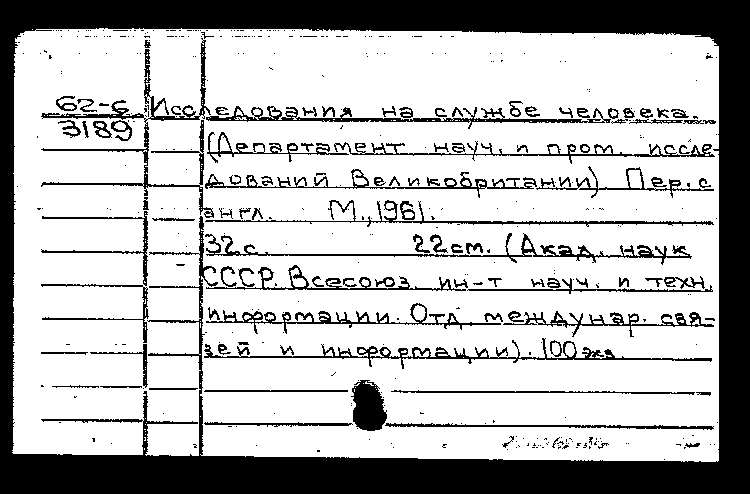 62-6 Исследования на службе человека.
3189
(Департамент науч. и пром. иссле-
дований Великобритании). Пер. с
англ. М., 1961.
32 с. 22 см. (Акад. наук
СССР. Всесоюз. ин-т науч. и техн.
информации. Отд. междунар. свя-
зей и информации). 100 экз.